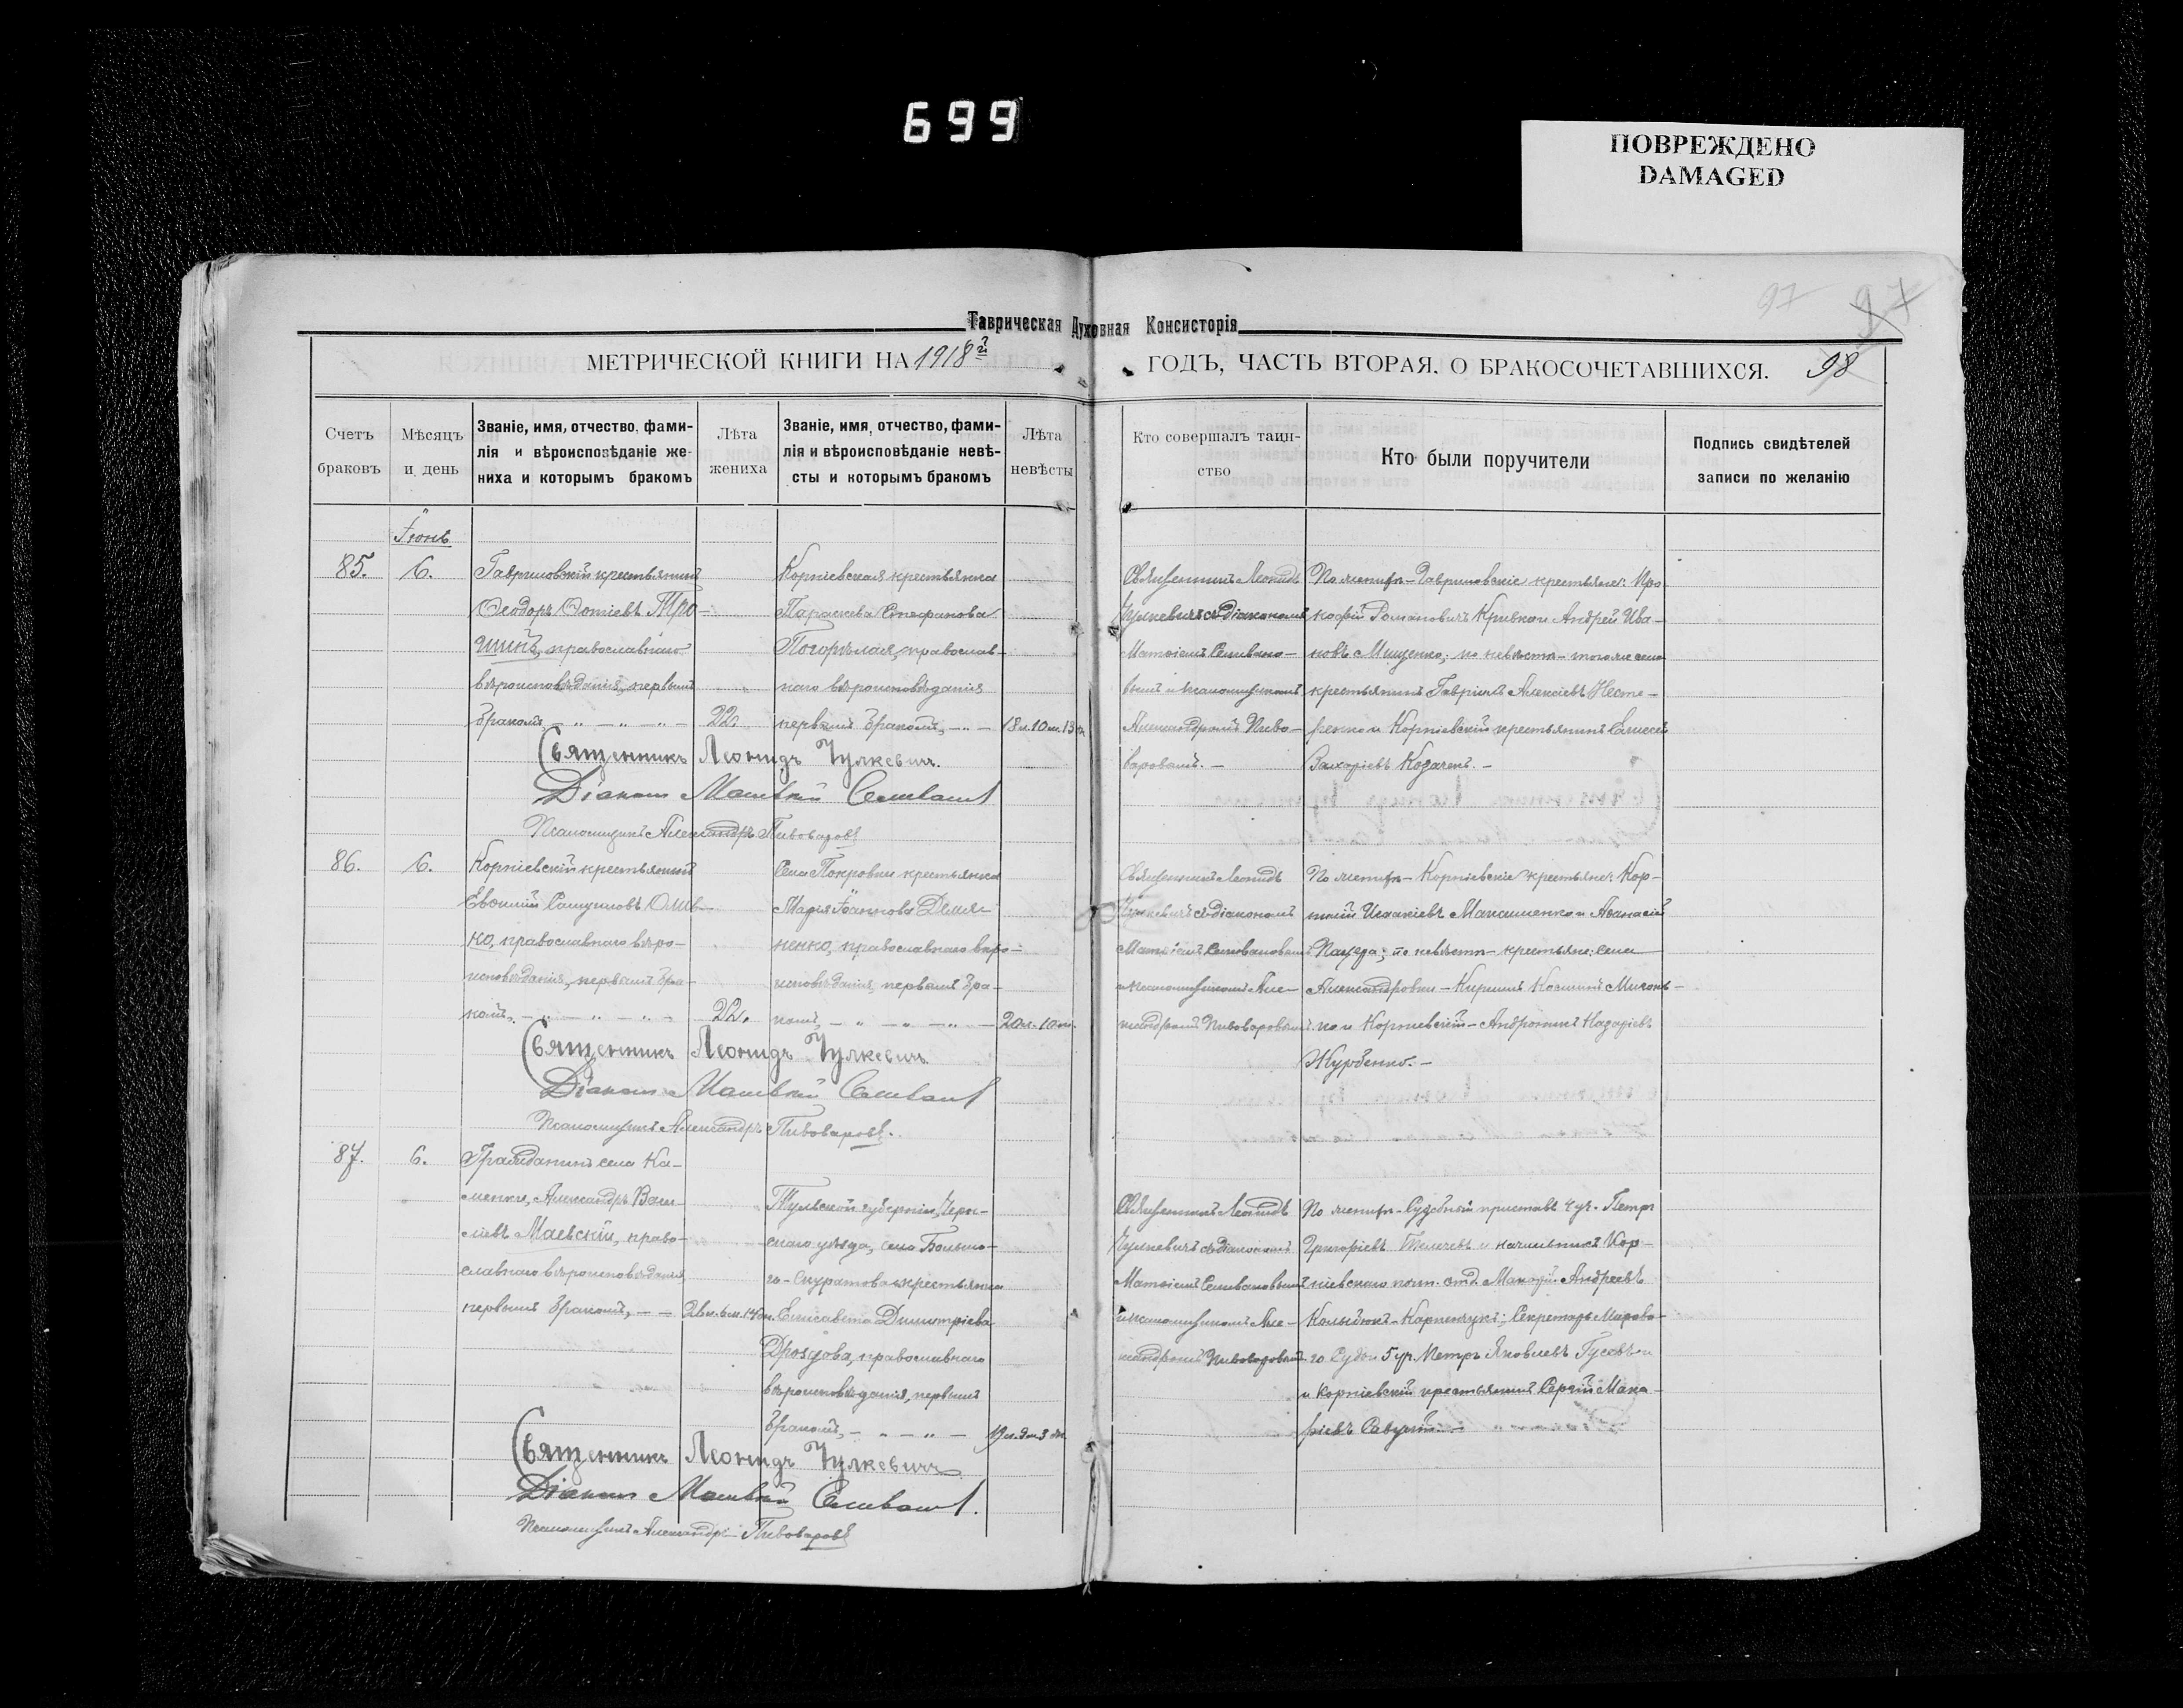 699
ПОВРЕЖДЕНО
DAMAGED
97 97
Таврическая Духовная Консисторія
МЕТРИЧЕСКОЙ КНИГИ НА 1918й ГОДЪ, ЧАСТЬ ВТОРАЯ, О БРАКОСОЧЕТАВШИХСЯ. 98
Счетъ браковъ
Мѣсяцъ и день
Званіе, имя, отчество, фами-
лія и вѣроисповѣданіе же-
ниха и которымъ бракомъ
Лѣта жениха
Званіе, имя, отчество, фами-
лія и вѣроисповѣданіе невѣ-
сты и которымъ бракомъ
Лѣта невѣсты
Кто совершалъ таин-
ство
Кто были поручители
Подпись свидѣтелей
записи по желанію
Іюнь
85. 6.
Гавриловскій крестьянинъ
Ѳеодоръ Ѳотіевъ Тро-
шинъ, православнаго
вѣроисповѣданія, первымъ
бракомъ, 22.
Корніевская крестьянка
Параскева Стефанова
Погорѣлая, православ-
наго вѣроисповѣданія
первымъ бракомъ, 18 л. 10 м. 13
Священникъ Леонидъ
Чулкевичъ съ діакономъ
Матѳіемъ Селивано-
вымъ и псаломщикомъ
Александромъ Пиво-
варовымъ.
По женихѣ - Гавриловскіе крестьяне: Про-
кофій Романовичъ Кривко и Андрей Ива-
новъ Мищенко; по невѣстѣ - того же села
крестьянинъ Гавріилъ Алексіевъ Несте-
ренко и Корніевскій крестьянинъ Елисей
Захаріевъ Козаченъ.
Священникъ Леонидъ Чулкевичъ.
Діаконъ Матвѣй Селивановъ
Псаломщикъ Александръ Пивоваровъ
86. 6.
Корніевскій крестьянинъ
Евѳимій Самуиловъ Олив-
ко, православнаго вѣро-
исповѣданія, первымъ бра-
комъ, 22.
Села Покровки крестьянка
Марія Іоаннова Демя-
ненко, православнаго вѣро-
исповѣданія, первымъ бра-
комъ, 20 л. 10 м.
Священникъ Леонидъ
Чулкевичъ съ діакономъ
Матѳіемъ Селивановымъ
и псаломщикомъ Але-
ксандромъ Пивоваровымъ.
По женихѣ - Корніевскіе крестьяне: Кор-
нилій Исаакіевъ Максименко и Аѳанасій
по невѣстѣ - крестьяне: села
Александровки - Кириллъ Косминъ
и Корніевскій - Андроникъ Назаріевъ
Журбенко.
Священникъ Леонидъ Чулкевичъ
Діаконъ Матвѣй Селивановъ
Псаломщикъ Александръ Пивоваровъ.
87. 6.
Гражданинъ села Ка-
менки, Александръ Васи-
ліевъ Маевскій, право-
славнаго вѣроисповѣданія,
первымъ бракомъ,
Тульской губерніи, Черн-
скаго уѣзда, села Большо-
го-Скуратова крестьянка
Елисавета Димитріева
Дроздова, православнаго
вѣроисповѣданія, первымъ
бракомъ, 19 л. 9 м. 3 дн.
Священникъ Леонидъ
Чулкевичъ съ діакономъ
Матѳіемъ Селивановымъ
и псаломщикомъ Але-
ксандромъ Пивоваровымъ.
По женихѣ - Судебный приставъ 4 уч. Петръ
Григоріевъ и начальникъ Кор-
ніевскаго Андреевъ
Карпенчукъ; Секретарь Мирова-
го Суда 5 уч. Петръ Яковлевъ Гусевъ и
и Корніевскій крестьянинъ Сергій Мака-
ріевъ
Священникъ Леонидъ Чулкевичъ
Діаконъ Матвѣй Селивановъ.
Псаломщикъ Александръ Пивоваровъ